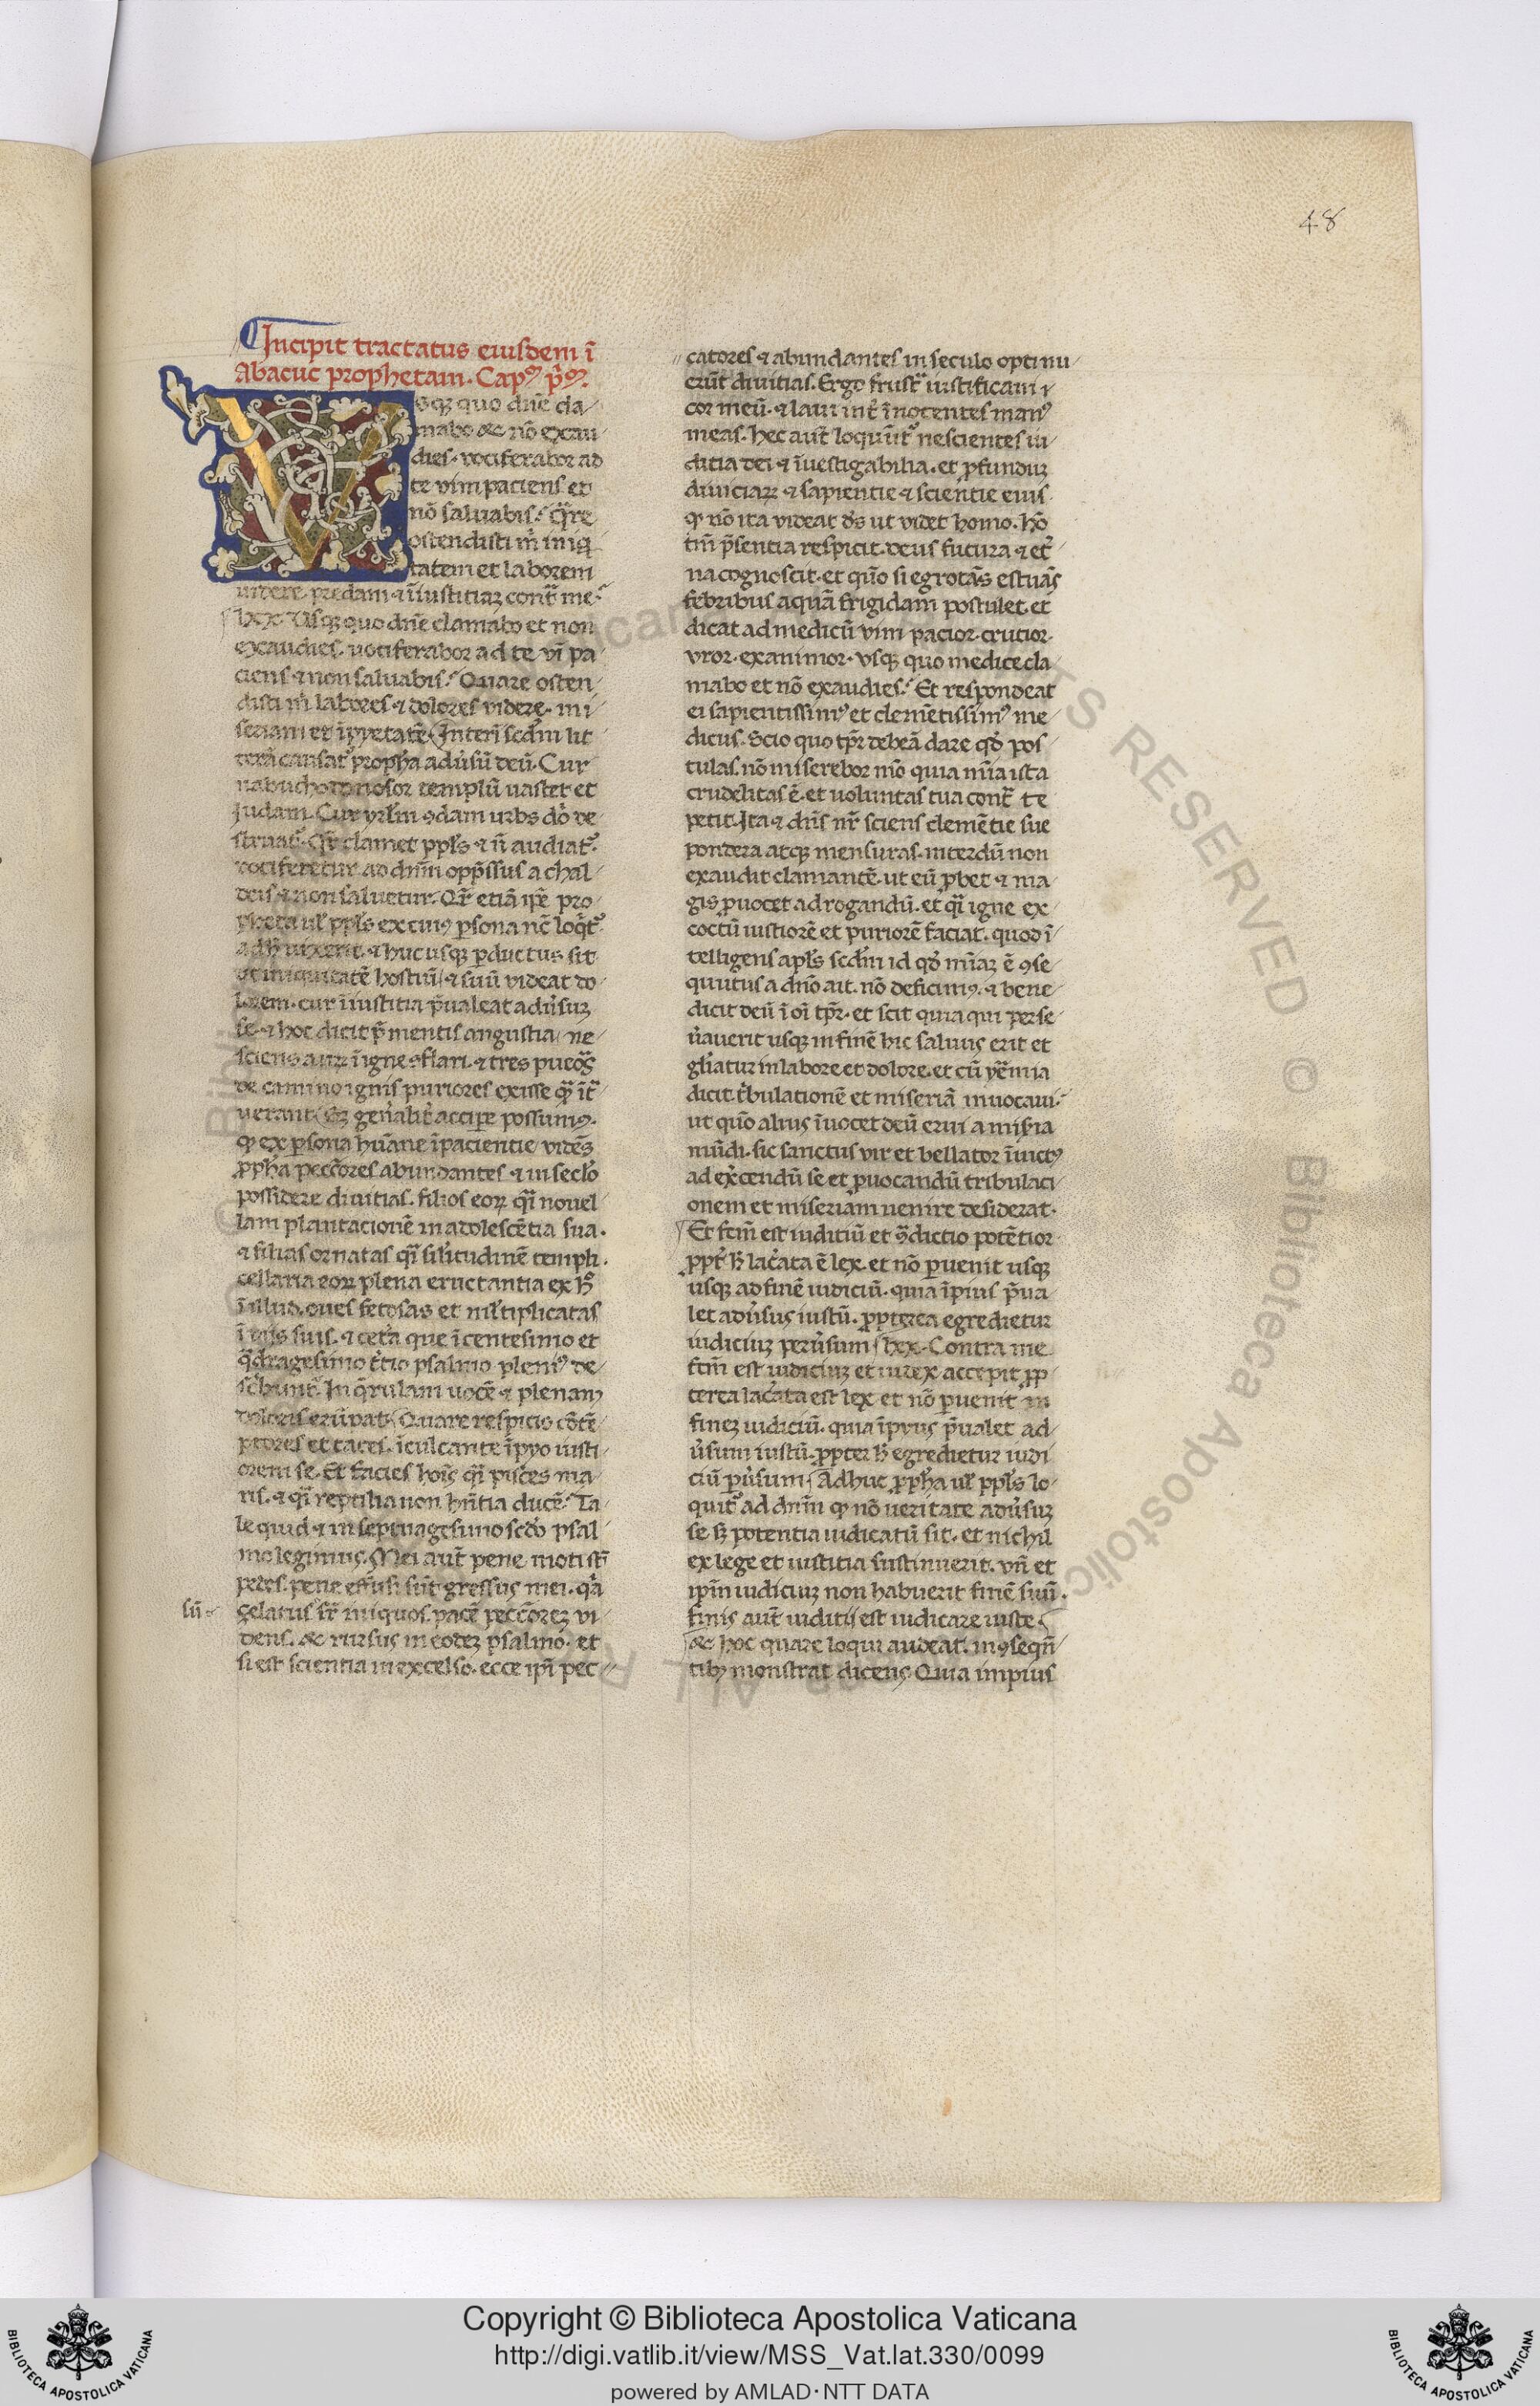 48
Incipit tractatus eiusdem ī
Abacuc prophetam. Capꝰ p̄ꝰ.
Vsqꝫ quo dn̄e cla
mabo &c nō exau
dies. vociferabor ad
te vim paciens et
nō saluabis? Qr̄e
ostendisti m̄ iniq
tatem et laborem
videre. predam ⁊ īiustitiaꝫ cont̄ me?
lxx. Usqꝫ quo dn̄e clamabo et non
exaudies. uociferabor ad te vī pa
ciens ⁊ non saluabis? Quare osten
disti m̄ labores ⁊ dolores videre. mi
seriam et īpyetatē. Interī scdm̄ lit
terā causat᷑ proph̄a adūsū deū. Cur
nabuchodonosor templū uastet et
Judam. Cur yrl̄m ꝯdam urbs dō de
struat᷑. Qr̄ clamet ppl̄s ⁊ n̄ audiat᷑.
vociferetur ad dn̄m opp̄ssus a chal
deis ⁊ non saluetur. Qr̄ etiā ip̄e pro
pheta ul̄ ppl̄s ex cuiꝰ ꝑsona nc̄ loq̄t᷑.
ad h̄ uixerit. ⁊ huc usqꝫ ꝑductus sit
ut iniquitatē hostiū ⁊ suū videat do
lorem. cur īiustitia p̄ualeat adūsuꝫ
se. ⁊ hoc dicit p̄ mentis angustia ne
sciens auꝝ īigne ꝯflari. ⁊ tres pueōs
de camino ignis puriores exisse qͣ īt̄
uerant. Sꝫ gen̄alit̄ accip̄e possumꝰ.
ꝙ ex ꝑsona hūane īpacientie vidēs
ꝓph̄a pecc̄ores abundantes ⁊ in seclō
possidere diuitias. filios eoꝝ qͣi nouel
lam plantacionē in adolescētia sua.
⁊ filias ornatas qͣi sil̄itudinē templi.
cellaria eoꝝ plena eructantia ex h̄
ī illud. oues fetosas et ml̄tiplicatas
ī suis. ⁊ cet̄a que ī centesimo et
q̄dragesimo t̄cio psalmo pleniꝰ de
sc̄bunt᷑. In q̄rulam uocē ⁊ plenam
doloris erūpat. Quare respicis cōtē
ptores et taces. īculcante īpyo iusti
orem se. Et facies hoīs qͣi pisces ma
ris. ⁊ qͣi reptilia non hn̄tia ducē. Ta
le quid ⁊ in septuagesimo scdō psal
mo legimus. Mei aut̄ pene moti st̄
pedes. pene effusi sūt gressus mei. qͣa
sū
celatus sr̄ iniquos. pacē pecc̄oreꝫ vi
dens. &c rursus in eodeꝫ psalmo. et
si est scientia in excelso. ecce ip̄i pec
catores ⁊ abundantes in seculo optinu
erūt diuitias. Ergo frust̄ iustificaui
cor meū. ⁊ laui int̄ īnocentes manꝰ
meas. hec aut̄ loquūt᷑ nescientes iu
ditia dei ⁊ īuestigabilia. et ꝓfunduꝫ
diuiciaꝝ ⁊ sapientie ⁊ scientie eius
ꝙ nō ita videat ds̄ ut videt homo. hō
tm̄ p̄sentia respicit. deus futura ⁊ et̄
na cognoscit. et quō si egrotās estuās
febribus aquā frigidam postulet. et
dicat ad medicū vim pacior. crucior.
vror. exanimor. vsqꝫ quo medice cla
mabo et nō exaudies? Et respondeat
ei sapientissimꝰ et clemētissimꝰ me
dicus. Scio quo tp̄r debeā dare qd̄ pos
tulas. nō miserebor mō quia mīa ista
crudelitas ē. et uoluntas tua cont̄ te
petit. Ita ⁊ dn̄s nr̄ sciens clemētie sue
pondera atqꝫ mensuras. interdū non
exaudit clamantē. ut eū ꝓbet ⁊ ma
gis ꝓuocet ad rogandū. et qͣi igne ex
coctū iustiorē et puriorē faciat. quod ī
telligens apl̄s scdm̄ id qd̄ mīaꝫ ē ꝯse
quutus a dn̄o ait. nō deficimꝰ. ⁊ bene
dicit deū ī oī tp̄r. et scit quia qui perse
ūauerit usqꝫ in finē hic saluus erit et
gl̄iatur in labore et dolore. et cū yēmia
dicit. t̄bulationē et miseriā inuocaui?
ut quō alius īuocet deū erui a miseria
mūdi. sic sanctus vir et bellator īuictꝰ
ad ex̄cendū se et ꝓuocandū tribulaci
onem et miseriam uenire desiderat.
Et fcm̄ est iuditiū et ꝯ̄dictio potētior
ꝓpt̄ h̄ lac̄ata ē lex. et nō ꝑuenit usqꝫ
usqꝫ ad finē iudiciū. quia īpius p̄ua
let adūsus iustū. ꝓpterea egredietur
iudiciuꝫ perūsum. lxx. Contra me
fcm̄ est iudiciuꝫ et iudex accepit ꝓp
terea lac̄ata est lex et nō ꝑuenit in
fineꝫ iudiciū. quia īpyus p̄ualet ad
ūsum iustū. ꝓpter h̄ egredietur iudi
ciū ꝑūsum. Adhuc ꝓph̄a ul̄ ppl̄s lo
quit᷑ ad dn̄m ꝙ nō ueritate adūsuꝫ
se sꝫ potentia iudicatū sit. et nichil
ex lege et iustitia sustinuerit. vn̄ et
ip̄m iudiciuꝫ non habuerit finē suū.
finis aut̄ iuditii est iudicare iuste.
&c hoc quare loqui audeat. in ꝯseqn̄
tibꝫ monstrat dicens Quia impius
Copyright © Biblioteca Apostolica Vaticana
http://digi.vatlib.it/view/MSS_Vat.lat.330/0099
powered by AMLAD·NTT DATA
BIBLIOTECA APOSTOLICA VATICANA
BIBLIOTECA APOSTOLICA VATICANA